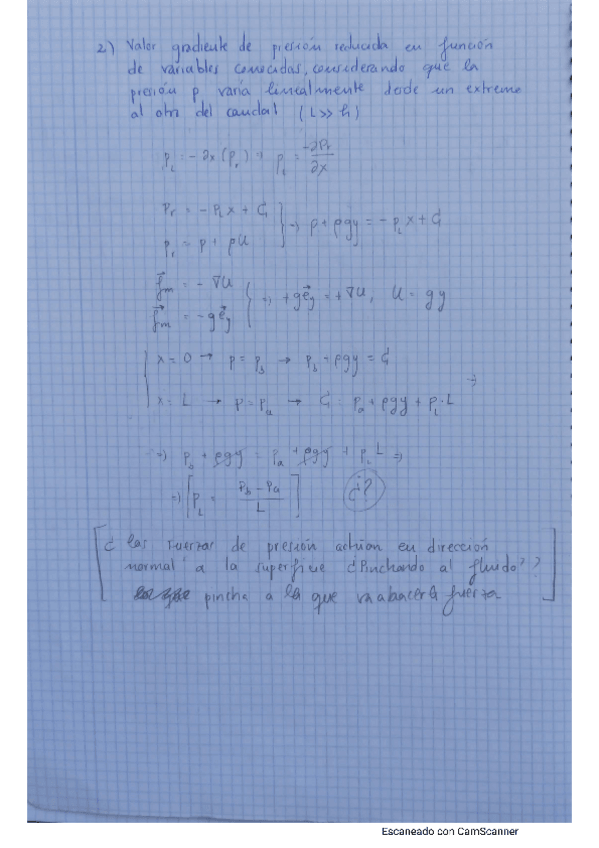 2) Valor gradiente de presión reducida en función
de variables conocidas, considerando que la
presión p varía linealmente desde un extremo
al otro del caudal (L>> h)
p_L = - ∂x (p_r) → p_L = -∂p_r/∂x
p_r = - p_L x + C_1
p_r = p + ρU
} → p + ρgy = - p_L x + C_1
f_m = - ∇U
f_m = - g e_y
} ⇒ +g e_y = +∇U, U = gy
x = 0 → p = p_b → p_b + ρgy = C_1
x = L → p = p_a → C_1 = p_a + ρgy + p_L · L
⇒
⇒ p_b + ρgy = p_a + ρgy + p_L L ⇒
⇒ [p_L = (p_b - p_a)/L] ¿?
[¿ las fuerzas de presión actúan en dirección
normal a la superficie ¿Pinchando al fluido??
pincha a la que va a hacer la fuerza]
Escaneado con CamScanner